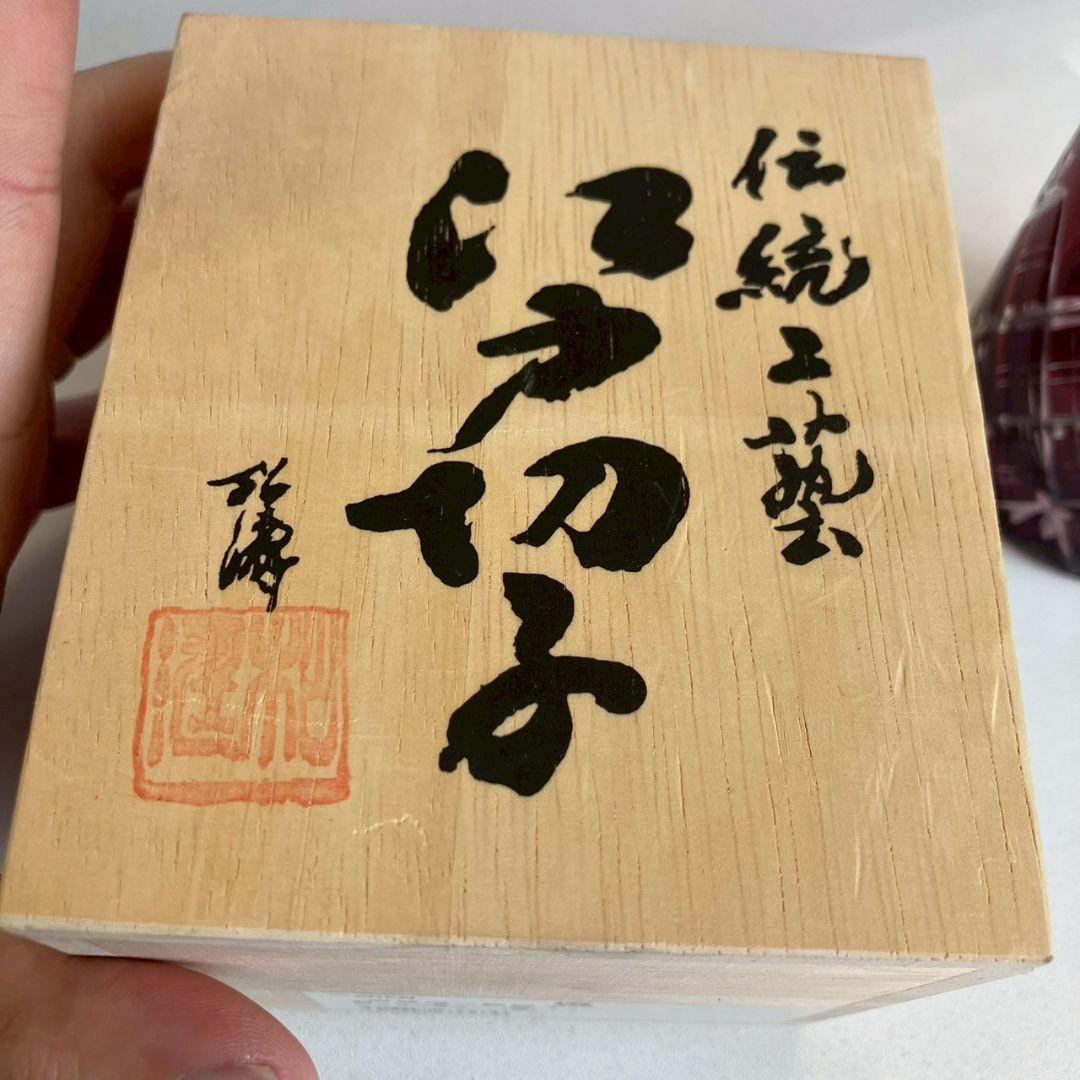 伝統工藝
江戸切子